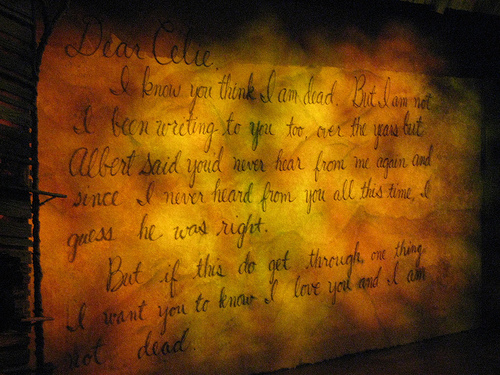 Dear Celie,
I know you think I am dead. But I am not
I been writing to you too, over the years but
Albert said you'd never hear from me again and
since I never heard from you all this time, I
guess he was right.
But if this do get through, one thing
I want you to know I love you and I am
not dead.